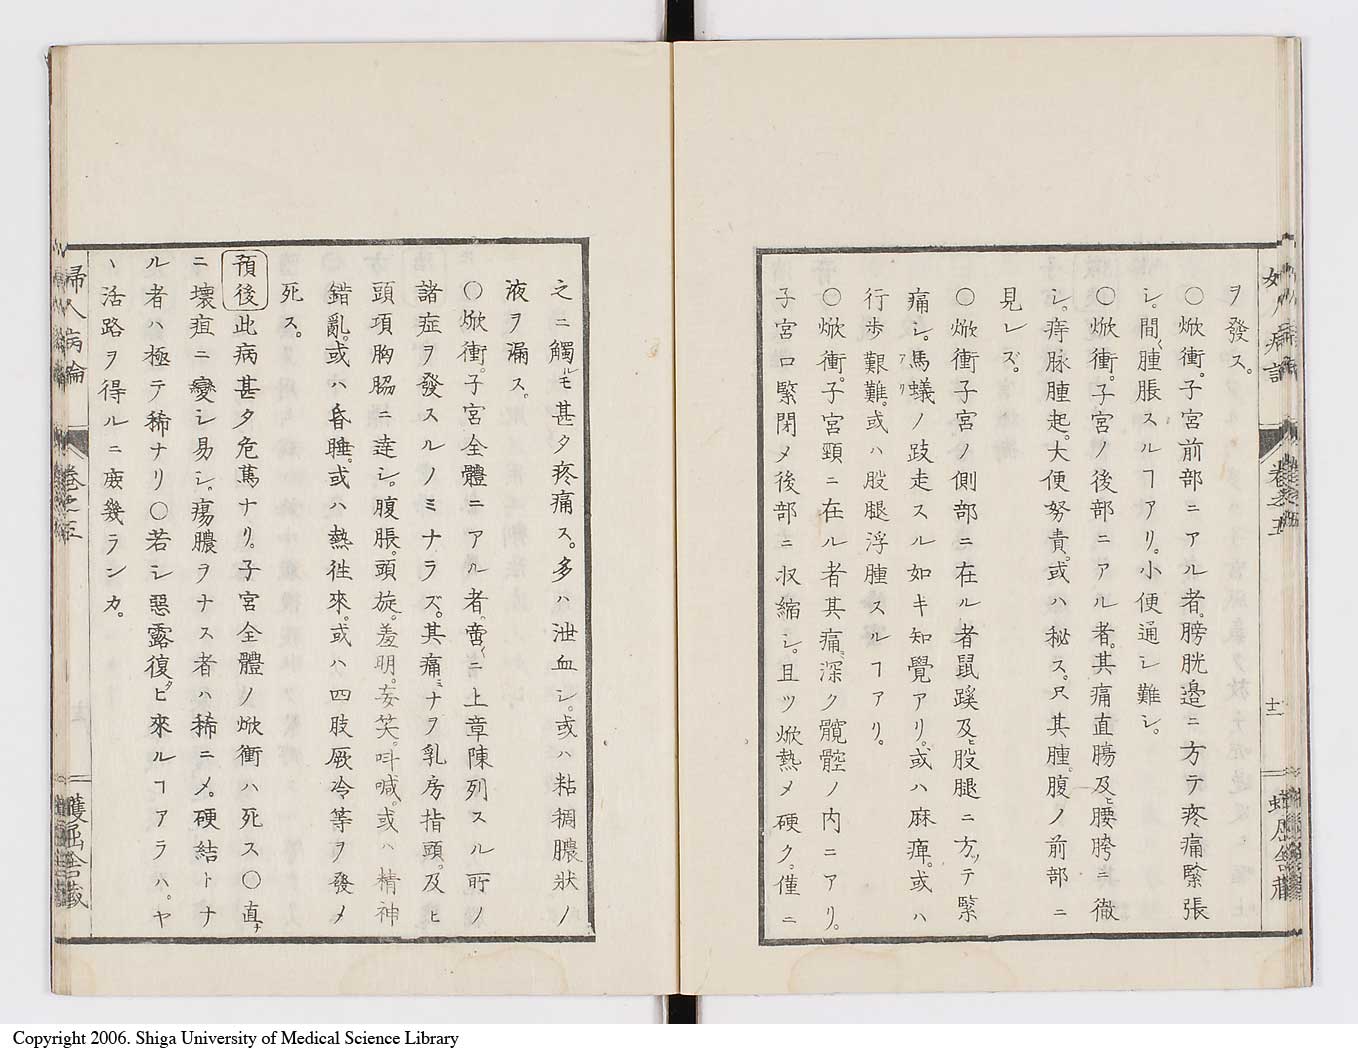 ヲ發ス。
〇焮衝。子宮前部ニアル者。膀胱邉ニ方テ疼痛緊張
シ。間〻腫脹スルヿアリ。小便通シ難シ。
〇焮衝。子宮ノ後部ニアル者。其痛直膓及ヒ腰胯ニ徹
シ。痔脉腫起。大便努責。或ハ秘ス。只其腫。腹ノ前部ニ
見レズ。
〇焮衝子宮ノ側部ニ在ル者鼠蹊及ヒ股腿ニ方ッテ緊
痛シ。馬蟻ノ跂走スル如キ知覺アリ。或ハ麻痺。或ハ
行歩艱難。或ハ股腿浮腫スルヿアリ。
〇焮衝。子宮頸ニ在ル者其痛ミ深ク髖髂ノ内ニアリ。
子宮口緊閉メ後部ニ収縮シ。且ツ焮熱メ硬ク。僅ニ
婦人病論
卷之五
十二
蠖屈舎藏
之ニ觸ルモ甚タ疼痛ス。多ハ泄血シ。或ハ粘稠膿狀ノ
液ヲ漏ス。
〇焮衝。子宮全體ニアル者。啻ニ上章陳列スル所ノ
諸症ヲ發スルノミナラズ。其痛ミナヲ乳房指頭。及ヒ
頭項胸脇ニ達シ。腹脹。頭旋。羞明。妄笑。叫喊。或ハ精神
錯亂。或ハ昏睡。或ハ熱徃來。或ハ四肢厥冷等ヲ發メ
死ス。
預後此病甚タ危篤ナリ。子宮全體ノ焮衝ハ死ス〇直ナ
ニ壞疽ニ變シ易シ。瘍膿ヲナス者ハ稀ニメ。硬結トナ
ル者ハ極テ稀ナリ〇若シ惡露復タヒ來ルヿアラハ。ヤ
、活路ヲ得ルニ庻幾ランカ。
婦人病論
卷之五
蠖屈舎藏
Copyright 2006. Shiga University of Medical Science Library